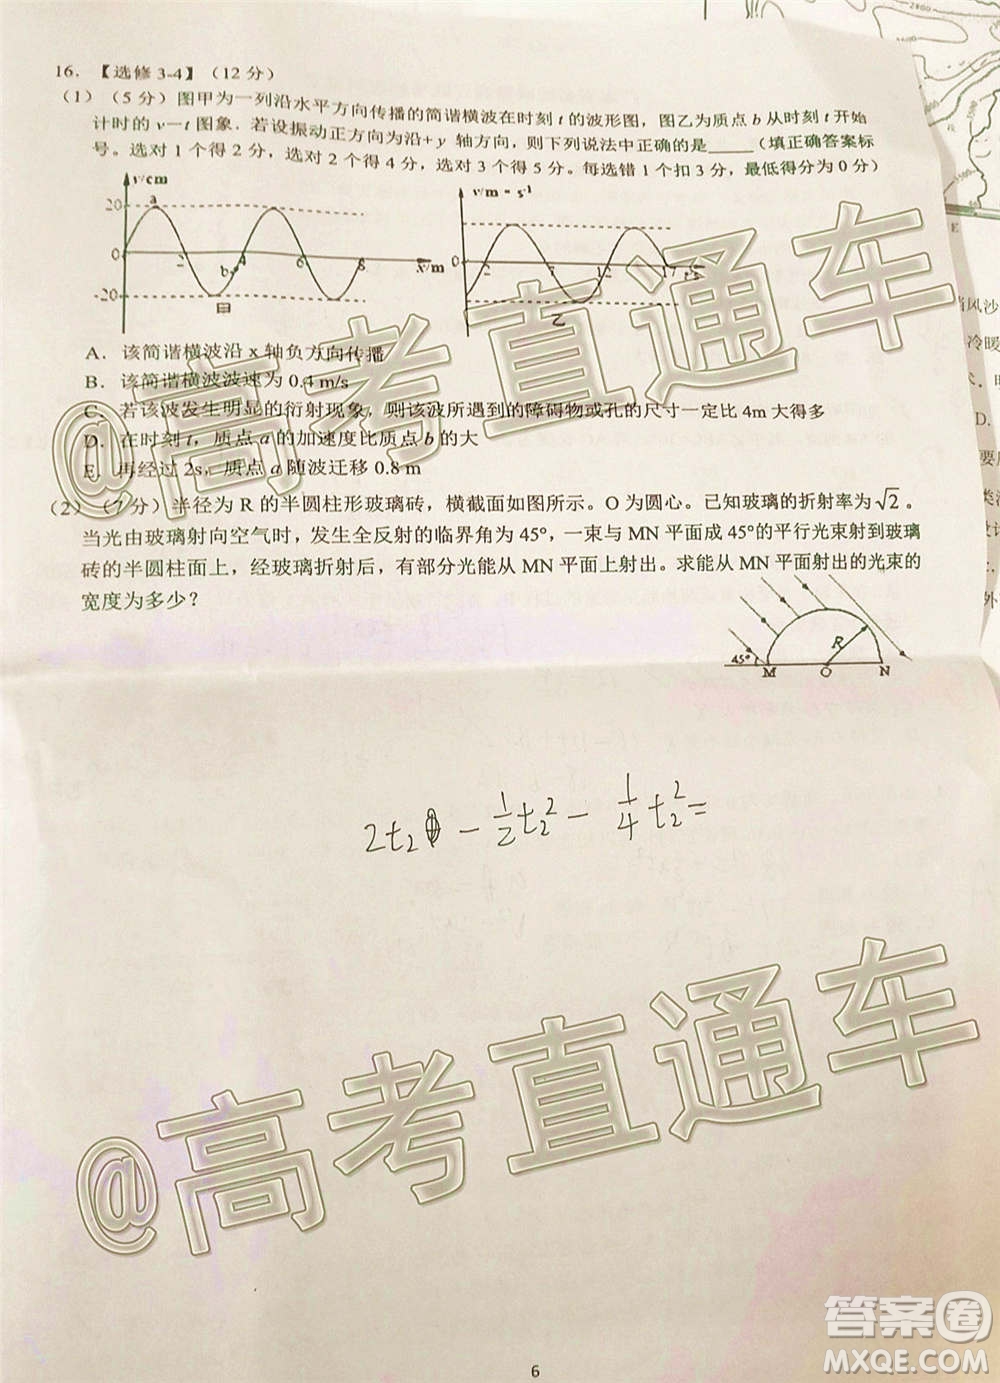 16. 【选修 3-4】(12 分)
(1)(5 分)图甲为一列沿水平方向传播的简谐横波在时刻 t 的波形图，图乙为质点 b 从时刻 t 开始
计时的 v—t 图象．若设振动正方向为沿+y 轴方向，则下列说法中正确的是_____(填正确答案标
号。选对 1 个得 2 分，选对 2 个得 4 分，选对 3 个得 5 分。每选错 1 个扣 3 分，最低得分为 0 分)
y/cm
a
20
0
2
4
6
8
x/m
b
-20
甲
v/m = s-1
0
2
12
17
乙
A．该简谐横波沿 x 轴负方向传播
B．该简谐横波波速为 0.4 m/s
C．若该波发生明显的衍射现象，则该波所遇到的障碍物或孔的尺寸一定比 4m 大得多
D．在时刻 t，质点 a 的加速度比质点 b 的大
E．再经过 2s，质点 a 随波迁移 0.8 m
(2)(7 分)半径为 R 的半圆柱形玻璃砖，横截面如图所示。O 为圆心。已知玻璃的折射率为√2。
当光由玻璃射向空气时，发生全反射的临界角为 45°，一束与 MN 平面成 45°的平行光束射到玻璃
砖的半圆柱面上，经玻璃折射后，有部分光能从 MN 平面上射出。求能从 MN 平面射出的光束的
宽度为多少？
45°
M
O
N
R
2t₂ - 1/2 t₂² - 1/4 t₂² =
@高考直通车
@高考直通车
6
答案圈
MXQE.COM
2800
E
当风沙
冷暖
D.
要
类